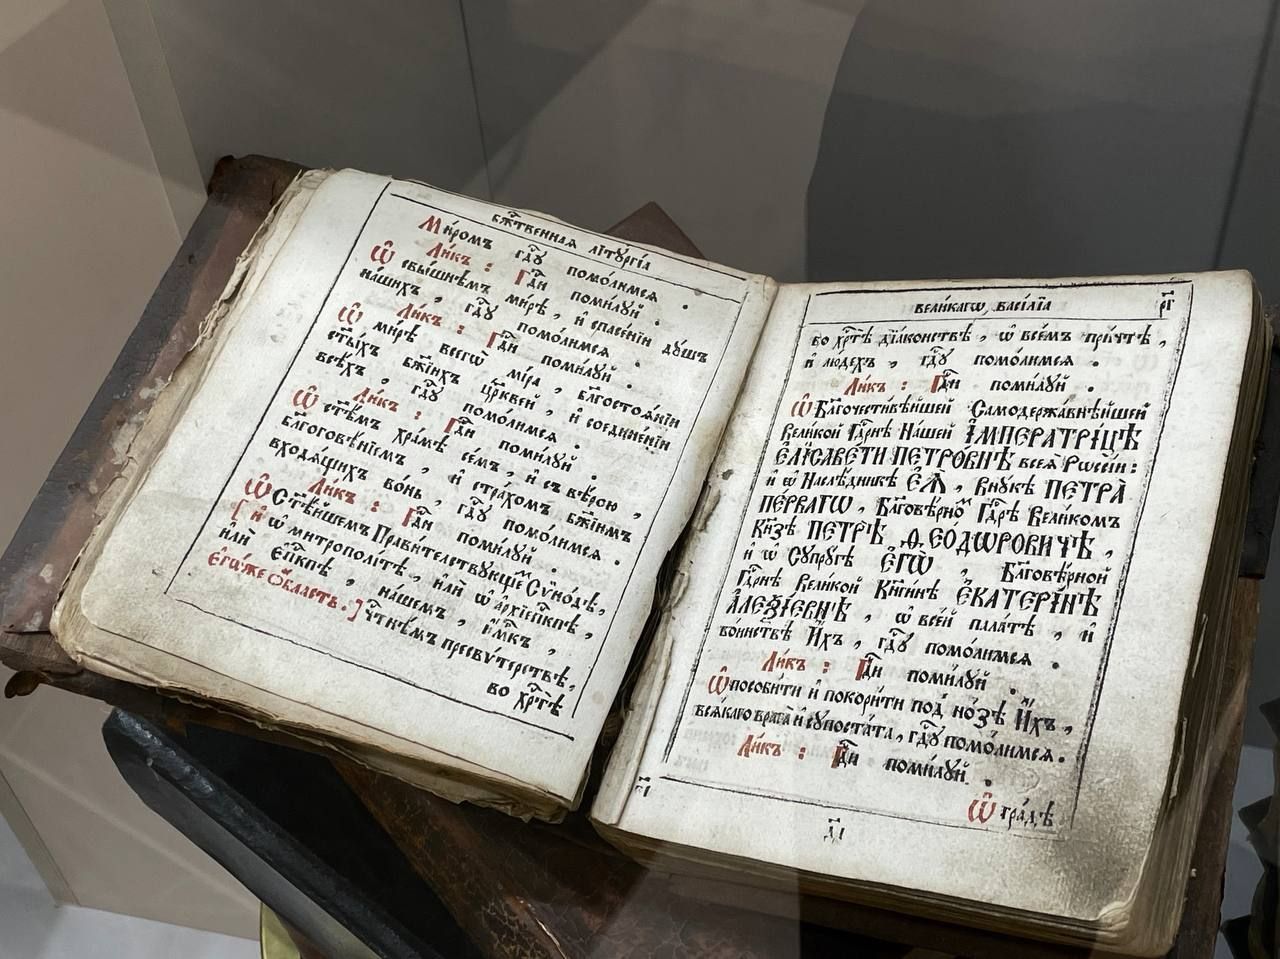 Бж҃твеннаѧ лїтꙋргі́а
Ми́ромъ гдⷭ҇ꙋ помо́лимсѧ .
Ли́къ : Гдⷭ҇и поми́лꙋй .
Ѽ свы́шнемъ ми́рѣ , и҆ спасе́нїи дꙋ́шъ
на́шихъ , гдⷭ҇ꙋ помо́лимсѧ .
Ли́къ : Гдⷭ҇и поми́лꙋй .
Ѽ ми́рѣ всегѡ̀ мі́ра , бл҃госто́ѧнїи
ст҃ы́хъ бж҃їихъ цр҃кве́й , и҆ соедине́нїи
всѣ́хъ , гдⷭ҇ꙋ помо́лимсѧ .
Ли́къ : Гдⷭ҇и поми́лꙋй .
Ѽ ст҃ѣ́мъ хра́мѣ се́мъ , и҆ съ вѣ́рою ,
бл҃гоговѣ́нїемъ , и҆ стра́хомъ бж҃їимъ
входѧ́щихъ во́нь , гдⷭ҇ꙋ помо́лимсѧ .
Ли́къ : Гдⷭ҇и поми́лꙋй .
Ѽ Ст҃ѣ́йшемъ Прави́телствꙋющемъ Сѵно́дѣ ,
[ и҆ ѡ҆ митрополі́тѣ , и҆лѝ ѡ҆ а҆рхїепⷭ҇кпѣ ,
и҆лѝ є҆пⷭ҇кпѣ , на́шемъ , и҆́мⷬ҇къ ,
Є҆гѡ́же ѡ҆́бласть . ] чⷭ҇тнѣ́мъ пресвѵ́терствѣ ,
во хрⷭ҇тѣ̀
Вели́кагѡ Васі́лїа
рг҃
во хрⷭ҇тѣ̀ дїа́конствѣ , ѡ҆ все́мъ при́чтѣ ,
и҆ лю́дехъ , гдⷭ҇ꙋ помо́лимсѧ .
Ли́къ : Гдⷭ҇и поми́лꙋй .
Ѽ Бл҃гочести́вѣйшей Самодержа́внѣйшей
Вели́кой Гдⷭ҇рнѣ На́шей І҆МПЕРАТРИ́ЦѢ
Є҆ЛІСАВЕ́ТИ ПЕТРО́ВНѢ всеѧ̀ Рѡссі́и :
и҆ ѡ҆ Наслѣ́дникѣ Є҆Ѧ̀ , Внꙋ́кѣ ПЕТРА̀
ПЕ́РВАГѠ , Бл҃говѣ́рномъ Гдⷭ҇рѣ Вели́комъ
Кнѧ́зѣ ПЕТРѢ̀ Ѳ҆ЕО́ДѠРОВИЧѢ ,
и҆ ѡ҆ Сꙋпрꙋ́гѣ Є҆ГѠ̀ , Бл҃говѣ́рной
Гдⷭ҇рнѣ Вели́кой Кнѧги́нѣ Є҆КАТЕРІ́НѢ
А҆ЛЕѮІ́ЕВНѢ , ѡ҆ все́й пала́тѣ , и҆
во́инствѣ И҆́хъ , гдⷭ҇ꙋ помо́лимсѧ .
Ли́къ : Гдⷭ҇и поми́лꙋй .
Ѽ пособи́ти и҆ покори́ти под но́зѣ И҆́хъ ,
всѧ́каго врага̀ и҆ сꙋпоста́та , гдⷭ҇ꙋ помо́лимсѧ .
Ли́къ : Гдⷭ҇и поми́лꙋй .
Ѽ гра́дѣ